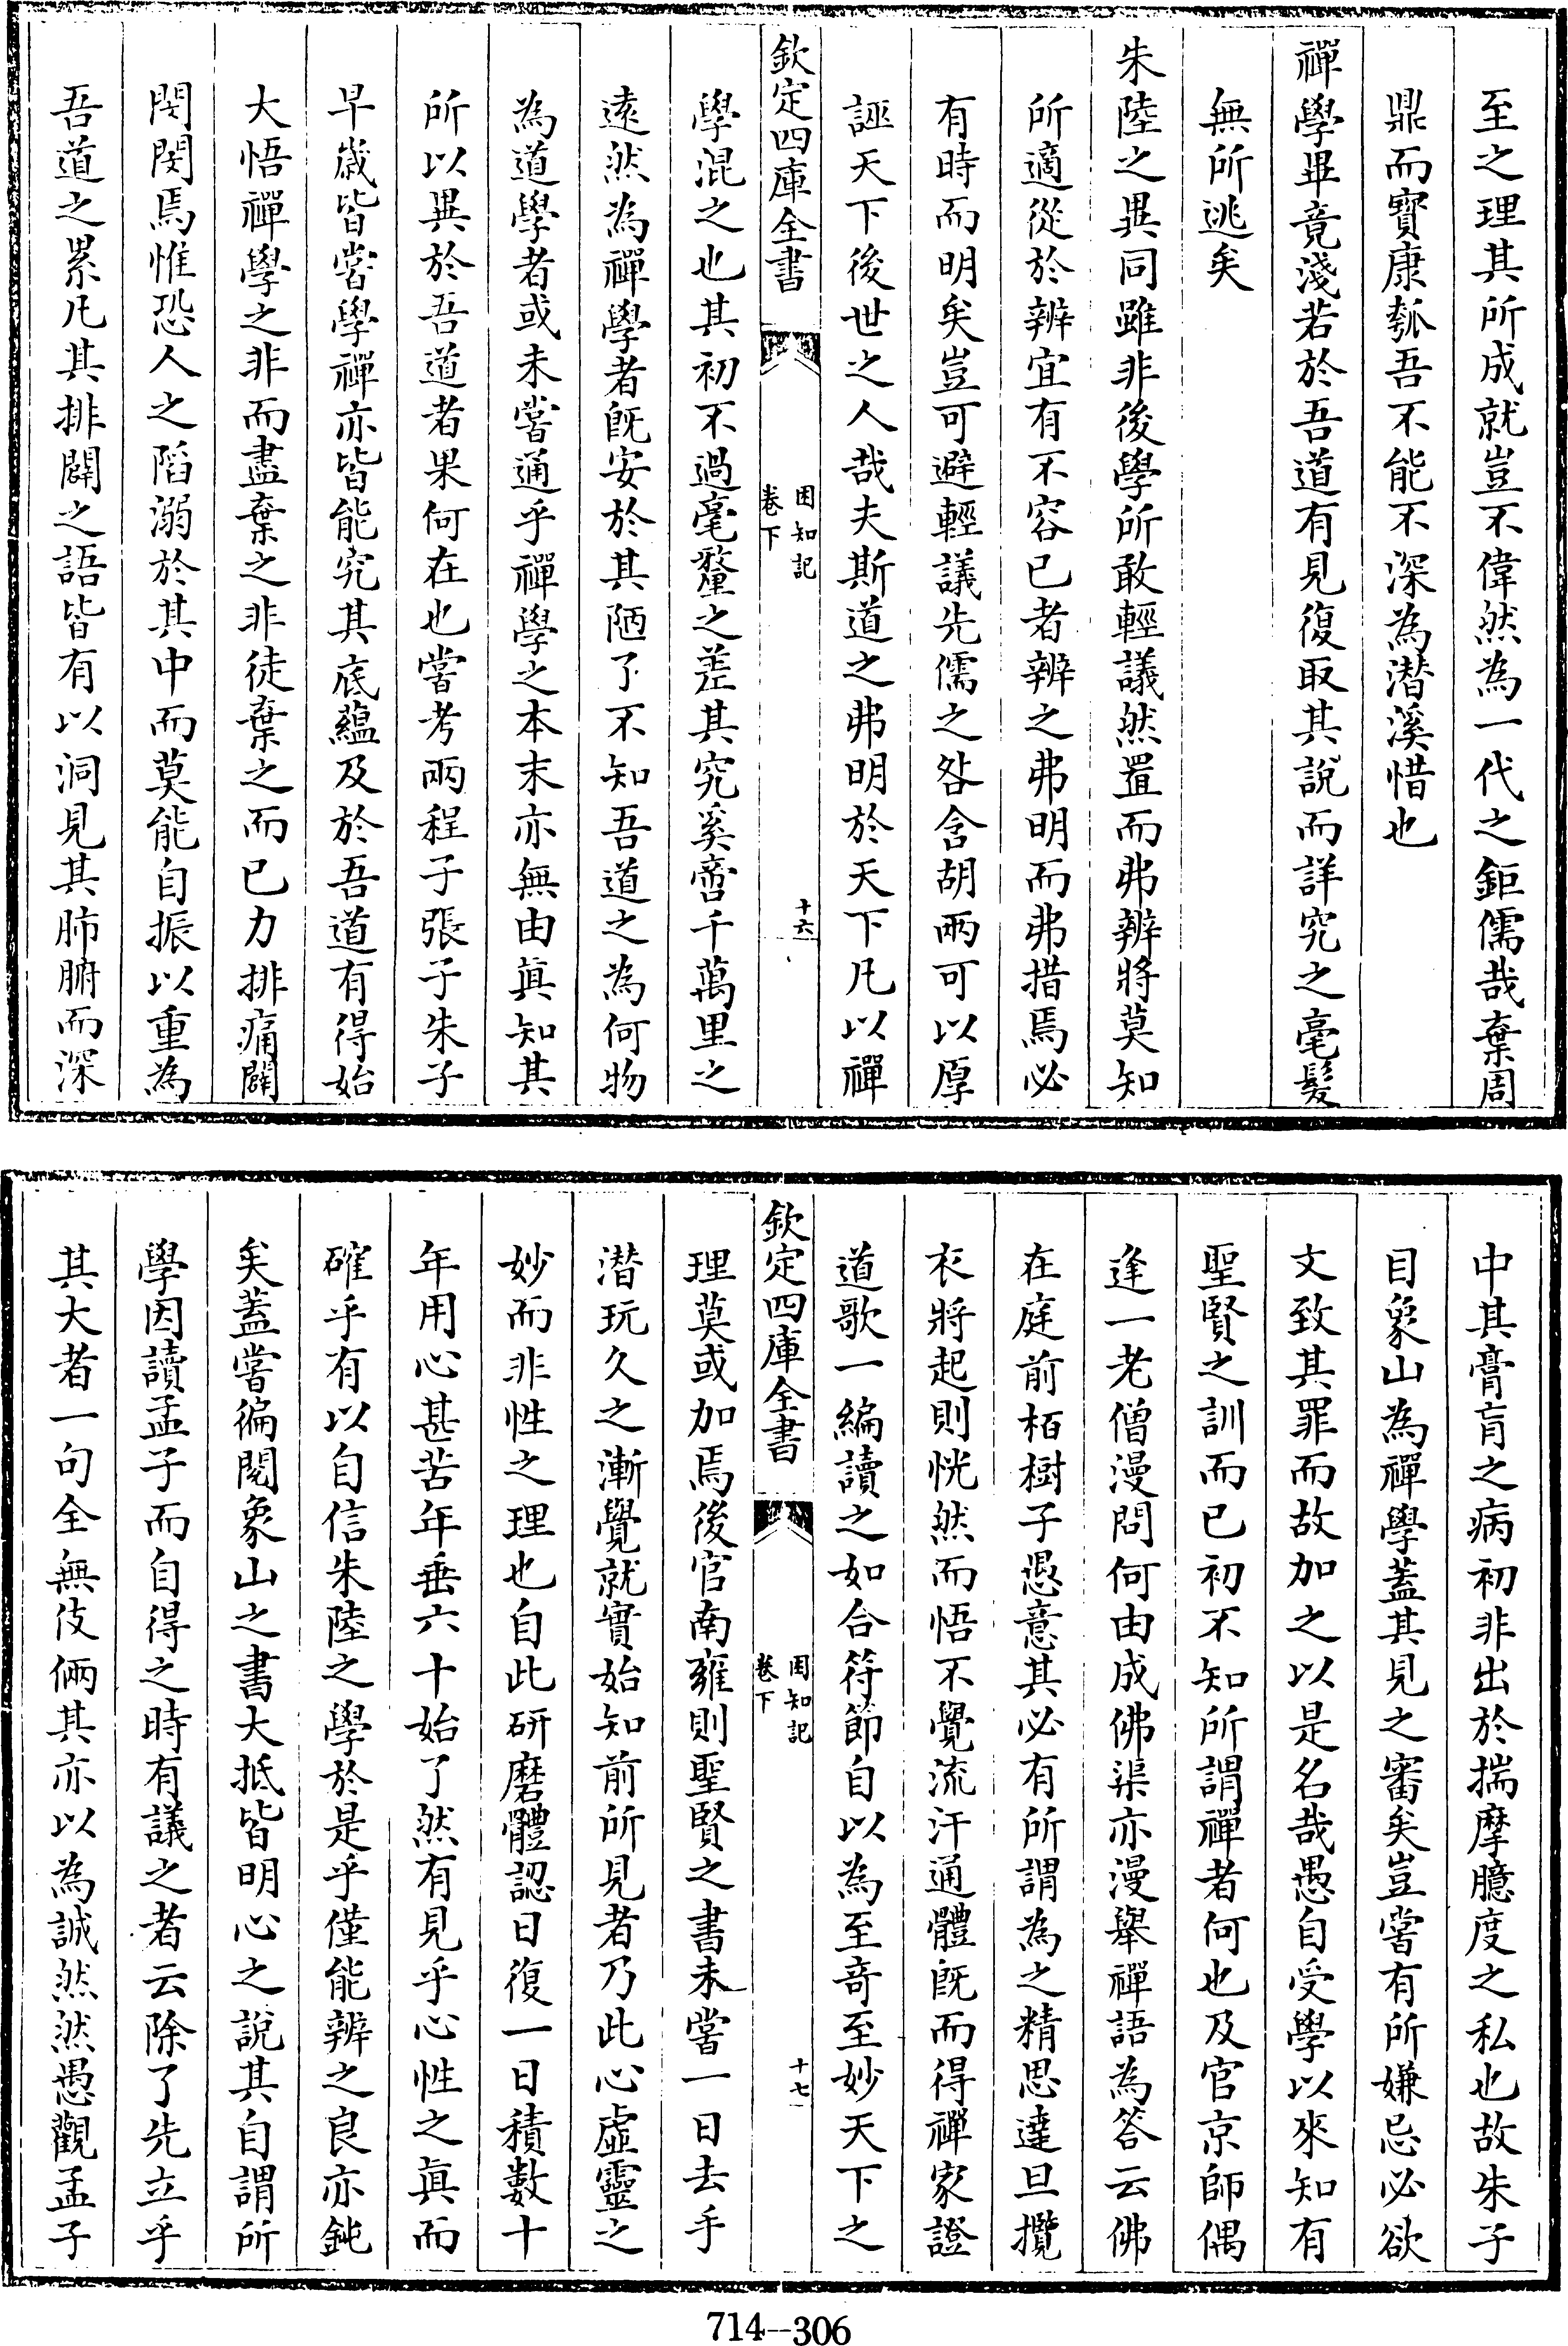 至之理其所成就豈不偉然為一代之鉅儒哉棄周
鼎而寶康瓠吾不能不深為潛溪惜也
禪學畢竟淺若於吾道有見復取其說而詳究之毫髮
無所逃矣
朱陸之異同雖非後學所敢輕議然置而弗辨將莫知
所適從於辨宜有不容已者辨之弗明而弗措焉必
有時而明矣豈可避輕議先儒之咎含胡兩可以厚
誣天下後世之人哉夫斯道之弗明於天下凡以禪
欽定四庫全書
困知記
卷下
十六
學混之也其初不過毫釐之差其究奚啻千萬里之
遠然為禪學者旣安於其陋了不知吾道之為何物
為道學者或未嘗通乎禪學之本末亦無由真知其
所以異於吾道者果何在也嘗考兩程子張子朱子
早歲皆嘗學禪亦皆能究其底蘊及於吾道有得始
大悟禪學之非而盡棄之非徒棄之而已力排痛闢
閔閔焉惟恐人之陷溺於其中而莫能自振以重為
吾道之累凡其排闢之語皆有以洞見其肺腑而深
中其膏肓之病初非出於揣摩臆度之私也故朱子
目象山為禪學蓋其見之審矣豈嘗有所嫌忌必欲
文致其罪而故加之以是名哉愚自受學以來知有
聖賢之訓而已初不知所謂禪者何也及官京師偶
逢一老僧漫問何由成佛渠亦漫舉禪語為答云佛
在庭前栢樹子愚意其必有所謂為之精思達旦攬
衣將起則恍然而悟不覺流汗通體旣而得禪家證
道歌一編讀之如合符節自以為至奇至妙天下之
欽定四庫全書
困知記
卷下
十七
理莫或加焉後官南雍則聖賢之書未嘗一日去手
潛玩久之漸覺就實始知前所見者乃此心虛靈之
妙而非性之理也自此研磨體認日復一日積數十
年用心甚苦年垂六十始了然有見乎心性之真而
確乎有以自信朱陸之學於是乎僅能辨之良亦鈍
矣蓋嘗徧閱象山之書大抵皆明心之說其自謂所
學因讀孟子而自得之時有議之者云除了先立乎
其大者一句全無伎倆其亦以為誠然然愚觀孟子
714--306